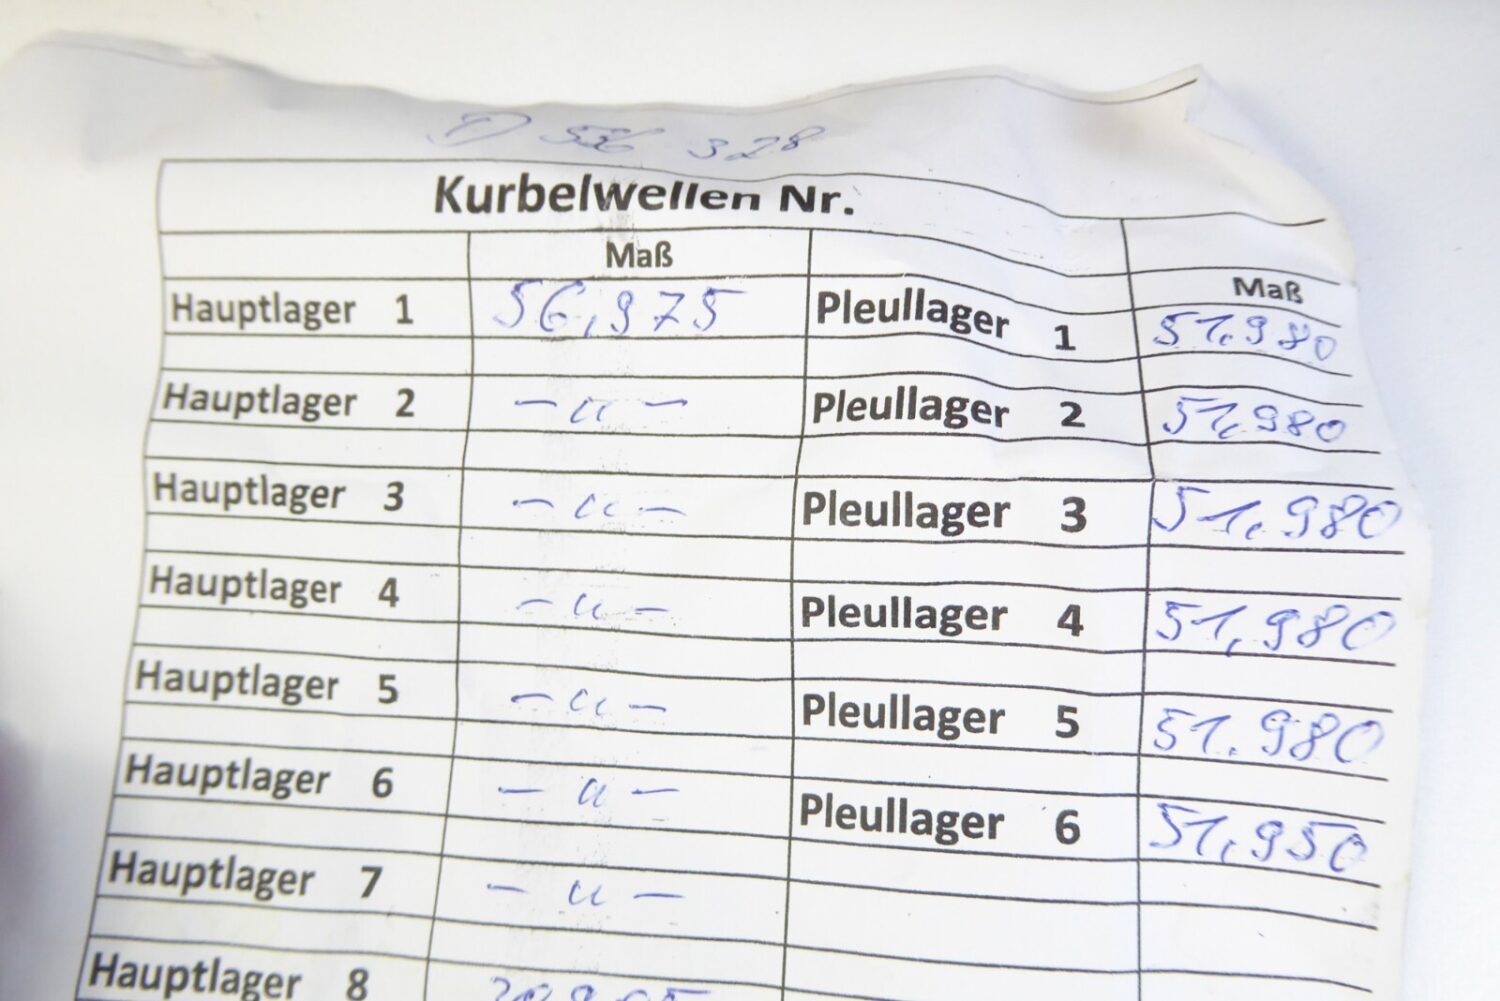 556 328
Kurbelwellen Nr.
Maß Maß
Hauptlager 1 56,975 Pleullager 1 51,980
Hauptlager 2 - " - Pleullager 2 51,980
Hauptlager 3 - " - Pleullager 3 51,980
Hauptlager 4 - " - Pleullager 4 51,980
Hauptlager 5 - " - Pleullager 5 51.980
Hauptlager 6 - " - Pleullager 6 51,950
Hauptlager 7 - " -
Hauptlager 8